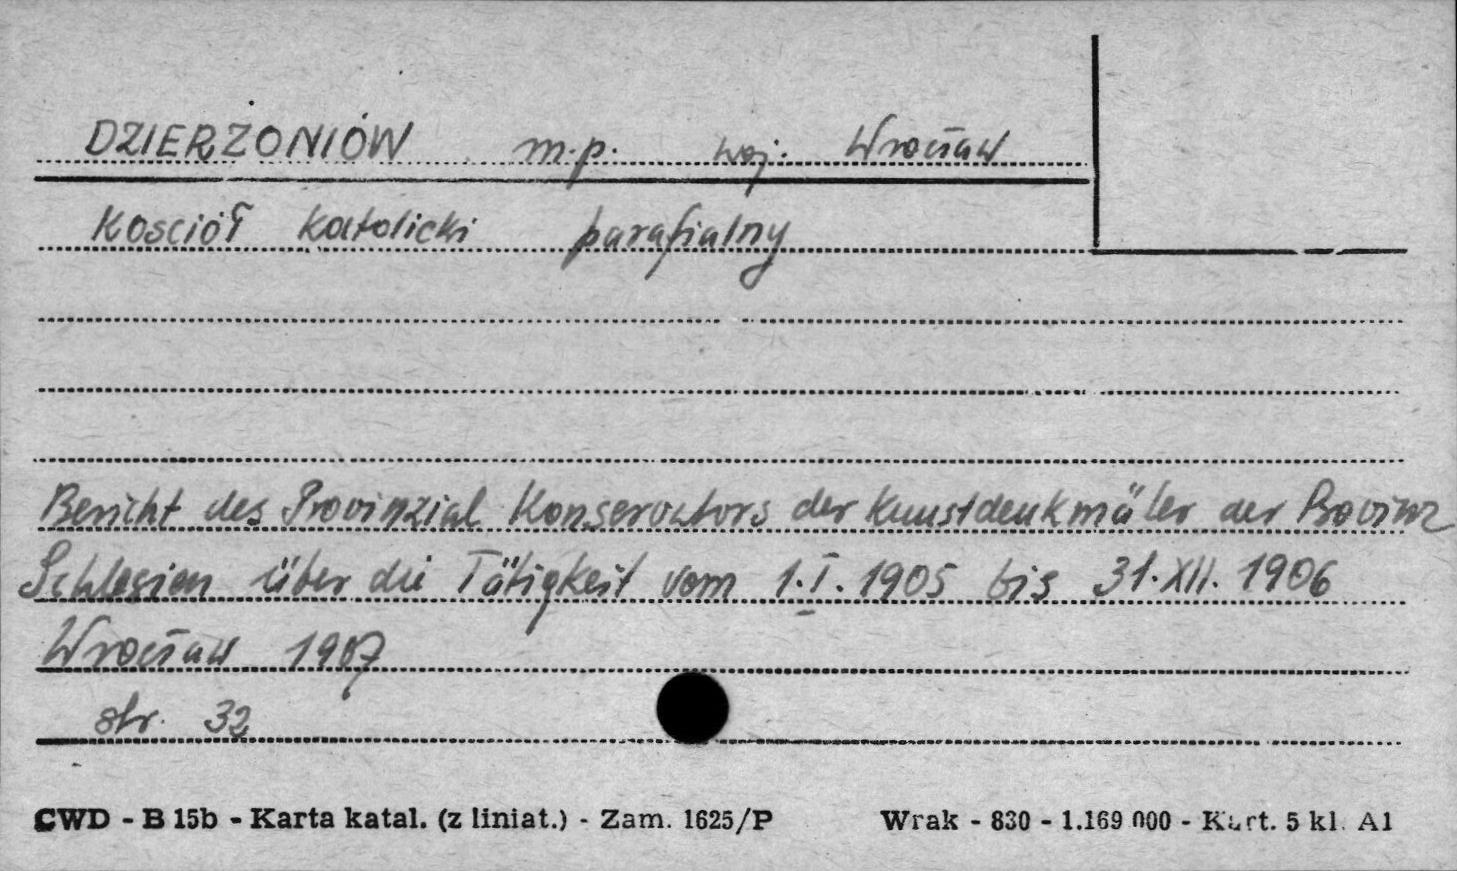 DZIERŻONIÓW m.p. woj. Wrocław
Kosciół katolicki parafialny
Bericht des Provinzial Konservators der Kunstdenkmäler der Provinz
Schlesien über die Tätigkeit vom 1.I.1905 bis 31.XII.1906
Wrocław 1907
str. 32
CWD - B 15b - Karta katal. (z liniat.) - Zam. 1625/P Wrak - 830 - 1.169 000 - Kart. 5 kl. A1